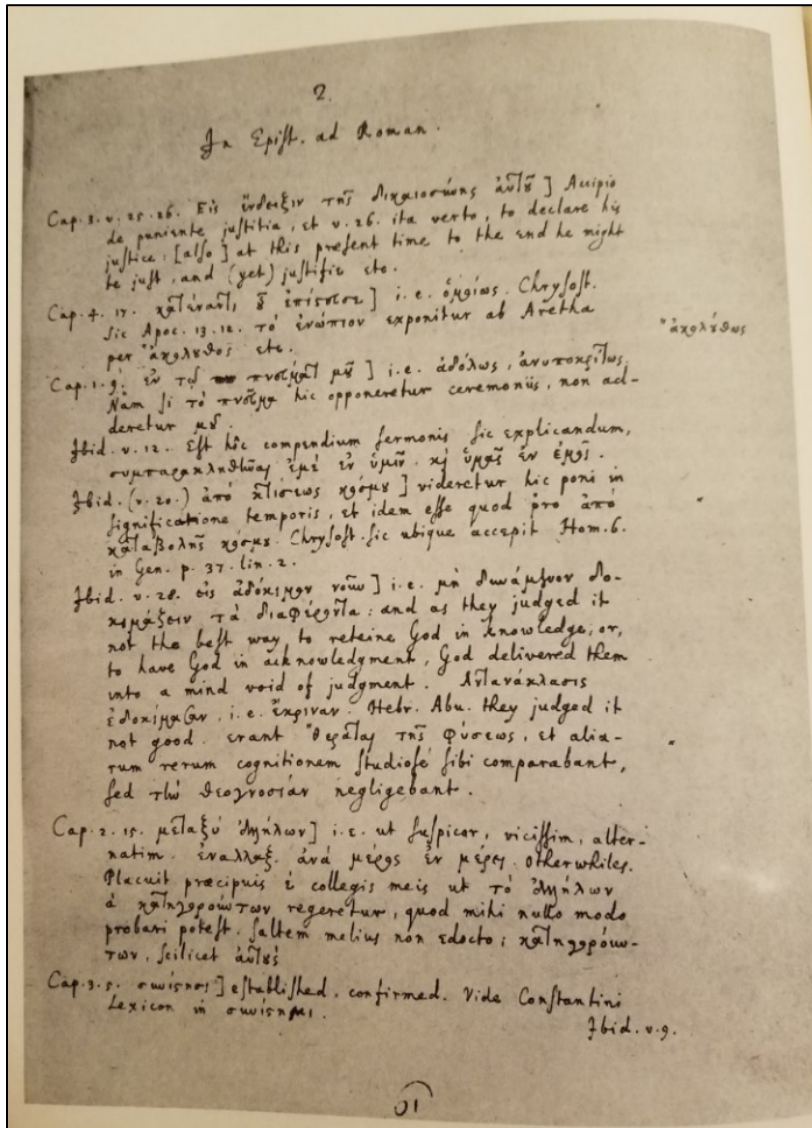 2.
In Epist. ad Roman.
Cap. 3. v. 25. 26. Εἰς ἔνδειξιν τῆς δικαιοσύνης αὐτοῦ ] Accipio
de puniente justitia, et v. 26. ita verto, to declare his
justice: [also] at this present time to the end he might
be just, and (yet) justifie etc.
Cap. 4. 17. κατέναντι οὗ ἐπίστευσε ] i.e. ὁμοίως. Chrysost.
sic Apoc. 13. 12. τὸ ἐνώπιον exponitur ab Aretha
per ἀκόλουθος etc.
ἀκολούθως
Cap. 1. 9. ἐν τῷ πνεύματί μου ] i.e. ἀδόλως, ἀνυποκρίτως.
Nam si τὸ πνεῦμα hic opponeretur ceremoniis, non ad-
deretur μου.
Ibid. v. 12. Est hic compendium sermonis sic explicandum,
συμπαρακληθῆναι ἐμὲ ἐν ὑμῖν, καὶ ὑμᾶς ἐν ἐμοί.
Ibid. (v. 20.) ἀπὸ κτίσεως κόσμου ] videretur hic poni in
significatione temporis, et idem esse quod pro ἀπὸ
καταβολῆς κόσμου. Chrysost. sic ubique accepit Hom. 6.
in Gen. p. 37. lin. 2.
Ibid. v. 28. εἰς ἀδόκιμον νοῦν ] i.e. μὴ δυνάμενον δο-
κιμάζειν τὰ διαφέροντα: and as they judged it
not the best way to reteine God in knowledge, or,
to have God in acknowledgment, God delivered them
into a mind void of judgment. Ἀντανάκλασις
ἐδοκίμασαν, i.e. ἔκριναν. Hebr. Abu. they judged it
not good. erant θεραταὶ τῆς φύσεως, et alia-
rum rerum cognitionem studiosè sibi comparabant,
sed τὴν θεογνοσίαν negligebant.
Cap. 2. 15. μεταξὺ ἀλλήλων ] i.e. ut suspicor, vicissim, alter-
natim. ἐναλλὰξ. ἀνὰ μέρος ἐν μέρει. otherwhiles.
Placuit præcipuis è collegis meis ut τὸ ἀλλήλων
à κατηγορούντων regeretur, quod mihi nullo modo
probari potest. saltem melius non edocto: κατηγορούν-
των, scilicet αὐτοὺς
Cap. 3. 5. συνίστησι ] established, confirmed. Vide Constantini
Lexicon in συνίστημι.
Ibid. v. 9.